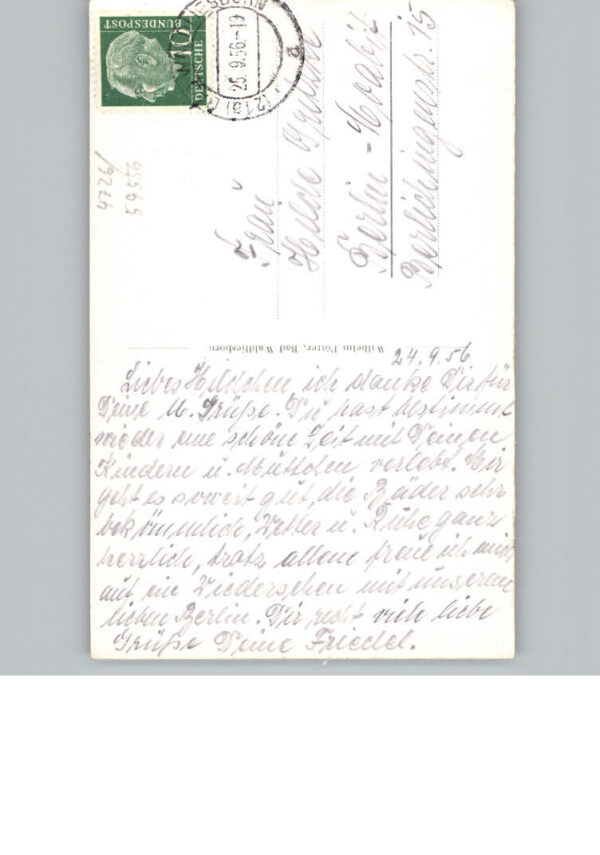 DEUTSCHE
BUNDESPOST
10
25.9.56.-19
a
4726/
59556
Frau
Hilde
Berlin - Moabit
Berlichingenstr. 15
Wilhelm Pötter, Bad Waldliesborn
24.9.56
Liebes Hildchen, ich danke Dir für
Deine lb. Grüße. Du hast bestimmt
wieder eine schöne Zeit mit Deinen
Kindern u. Muttchen verlebt. Mir
geht es soweit gut, die Bäder sehr
bekömmlich, Wetter u. Ruhe ganz
herrlich, trotz allem freue ich mich
auf ein Wiedersehen mit unserem
lieben Berlin. Dir recht viele liebe
Grüße Deine Friedel.